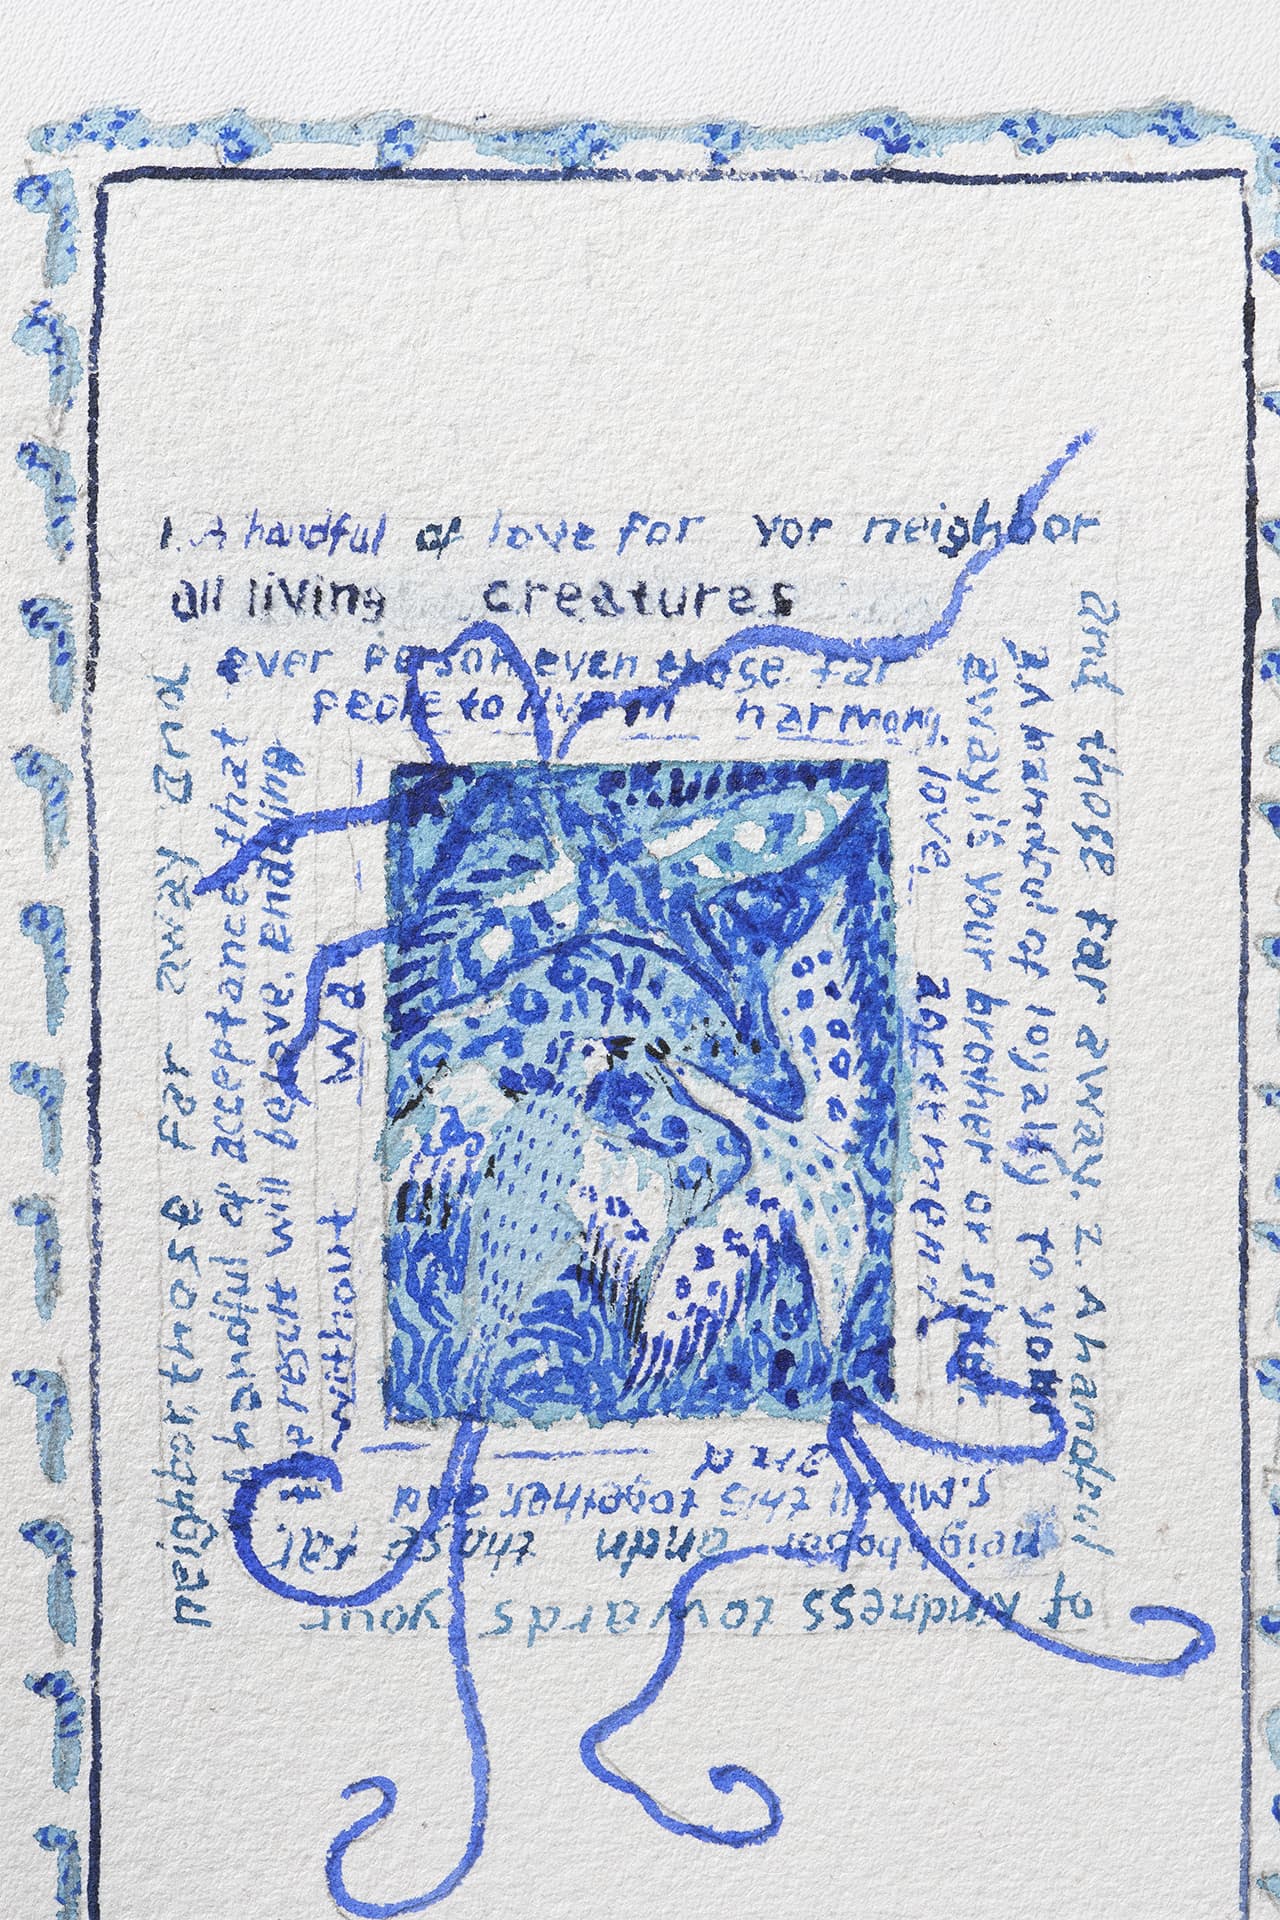 1. A handful of love for yor neighbor
and those far away. 2. A handful
of kindness towards your
neighbor. those far sway and
all living creatures
3. A handful of loyalty to your
those far
handful of acceptance that
ever person even those far
away. is your brother or
5. Mix all this together. and
result will be love.
people to live in harmony.
love. agreement
and
without wa